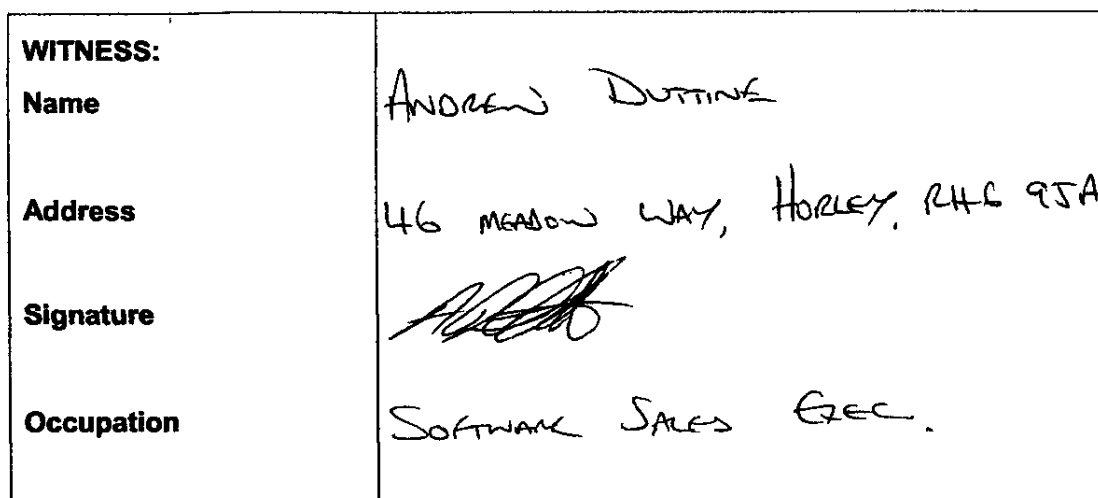 WITNESS:
Name ANDREW DUTTINE
Address 46 MEADOW WAY, HORLEY, RH6 9JA
Signature
Occupation SOFTWARE SALES EXEC.